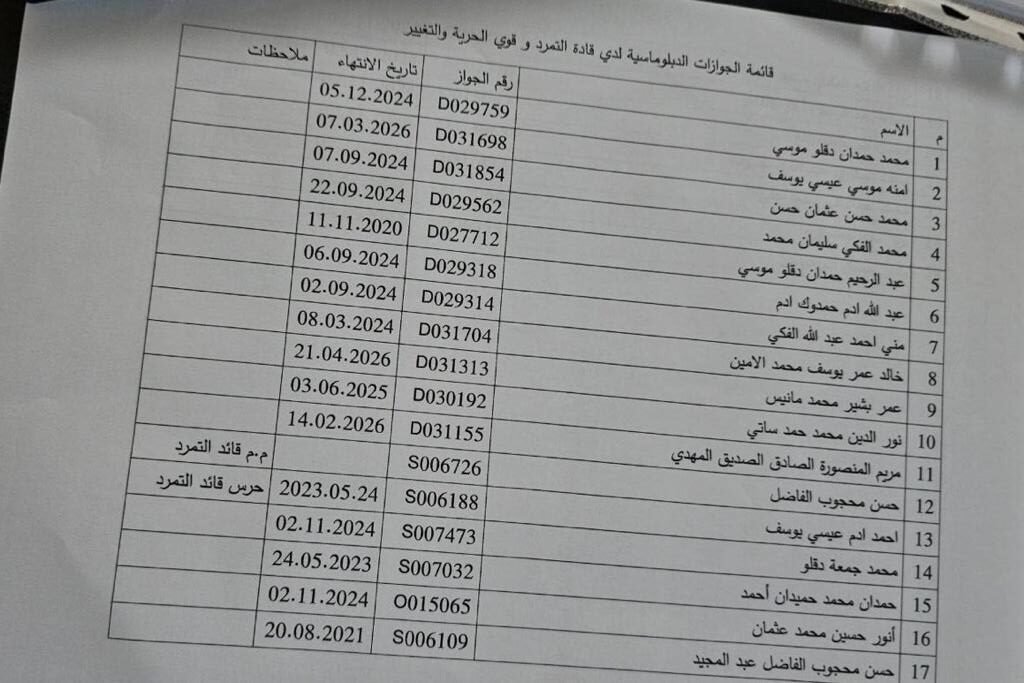 قائمة الجوازات الدبلوماسية لدي قادة التمرد و قوي الحرية والتغيير
م الاسم رقم الجواز تاريخ الانتهاء ملاحظات
1 محمد حمدان دقلو موسي D029759 05.12.2024
2 امنه موسي عيسي يوسف D031698 07.03.2026
3 محمد حسن عثمان حسن D031854 07.09.2024
4 محمد الفكي سليمان محمد D029562 22.09.2024
5 عبد الرحيم حمدان دقلو موسي D027712 11.11.2020
6 عبد الله ادم حمدوك ادم D029318 06.09.2024
7 مني احمد عبد الله الفكي D029314 02.09.2024
8 خالد عمر يوسف محمد الامين D031704 08.03.2024
9 عمر بشير محمد مانيس D031313 21.04.2026
10 نور الدين محمد حمد ساتي D030192 03.06.2025
11 مريم المنصورة الصادق الصديق المهدي D031155 14.02.2026
12 حسن محجوب الفاضل S006726 م.م قائد التمرد
13 احمد ادم عيسي يوسف S006188 2023.05.24 حرس قائد التمرد
14 محمد جمعة دقلو S007473 02.11.2024
15 حمدان محمد حميدان أحمد S007032 24.05.2023
16 أنور حسين محمد عثمان O015065 02.11.2024
17 حسن محجوب الفاضل عبد المجيد S006109 20.08.2021